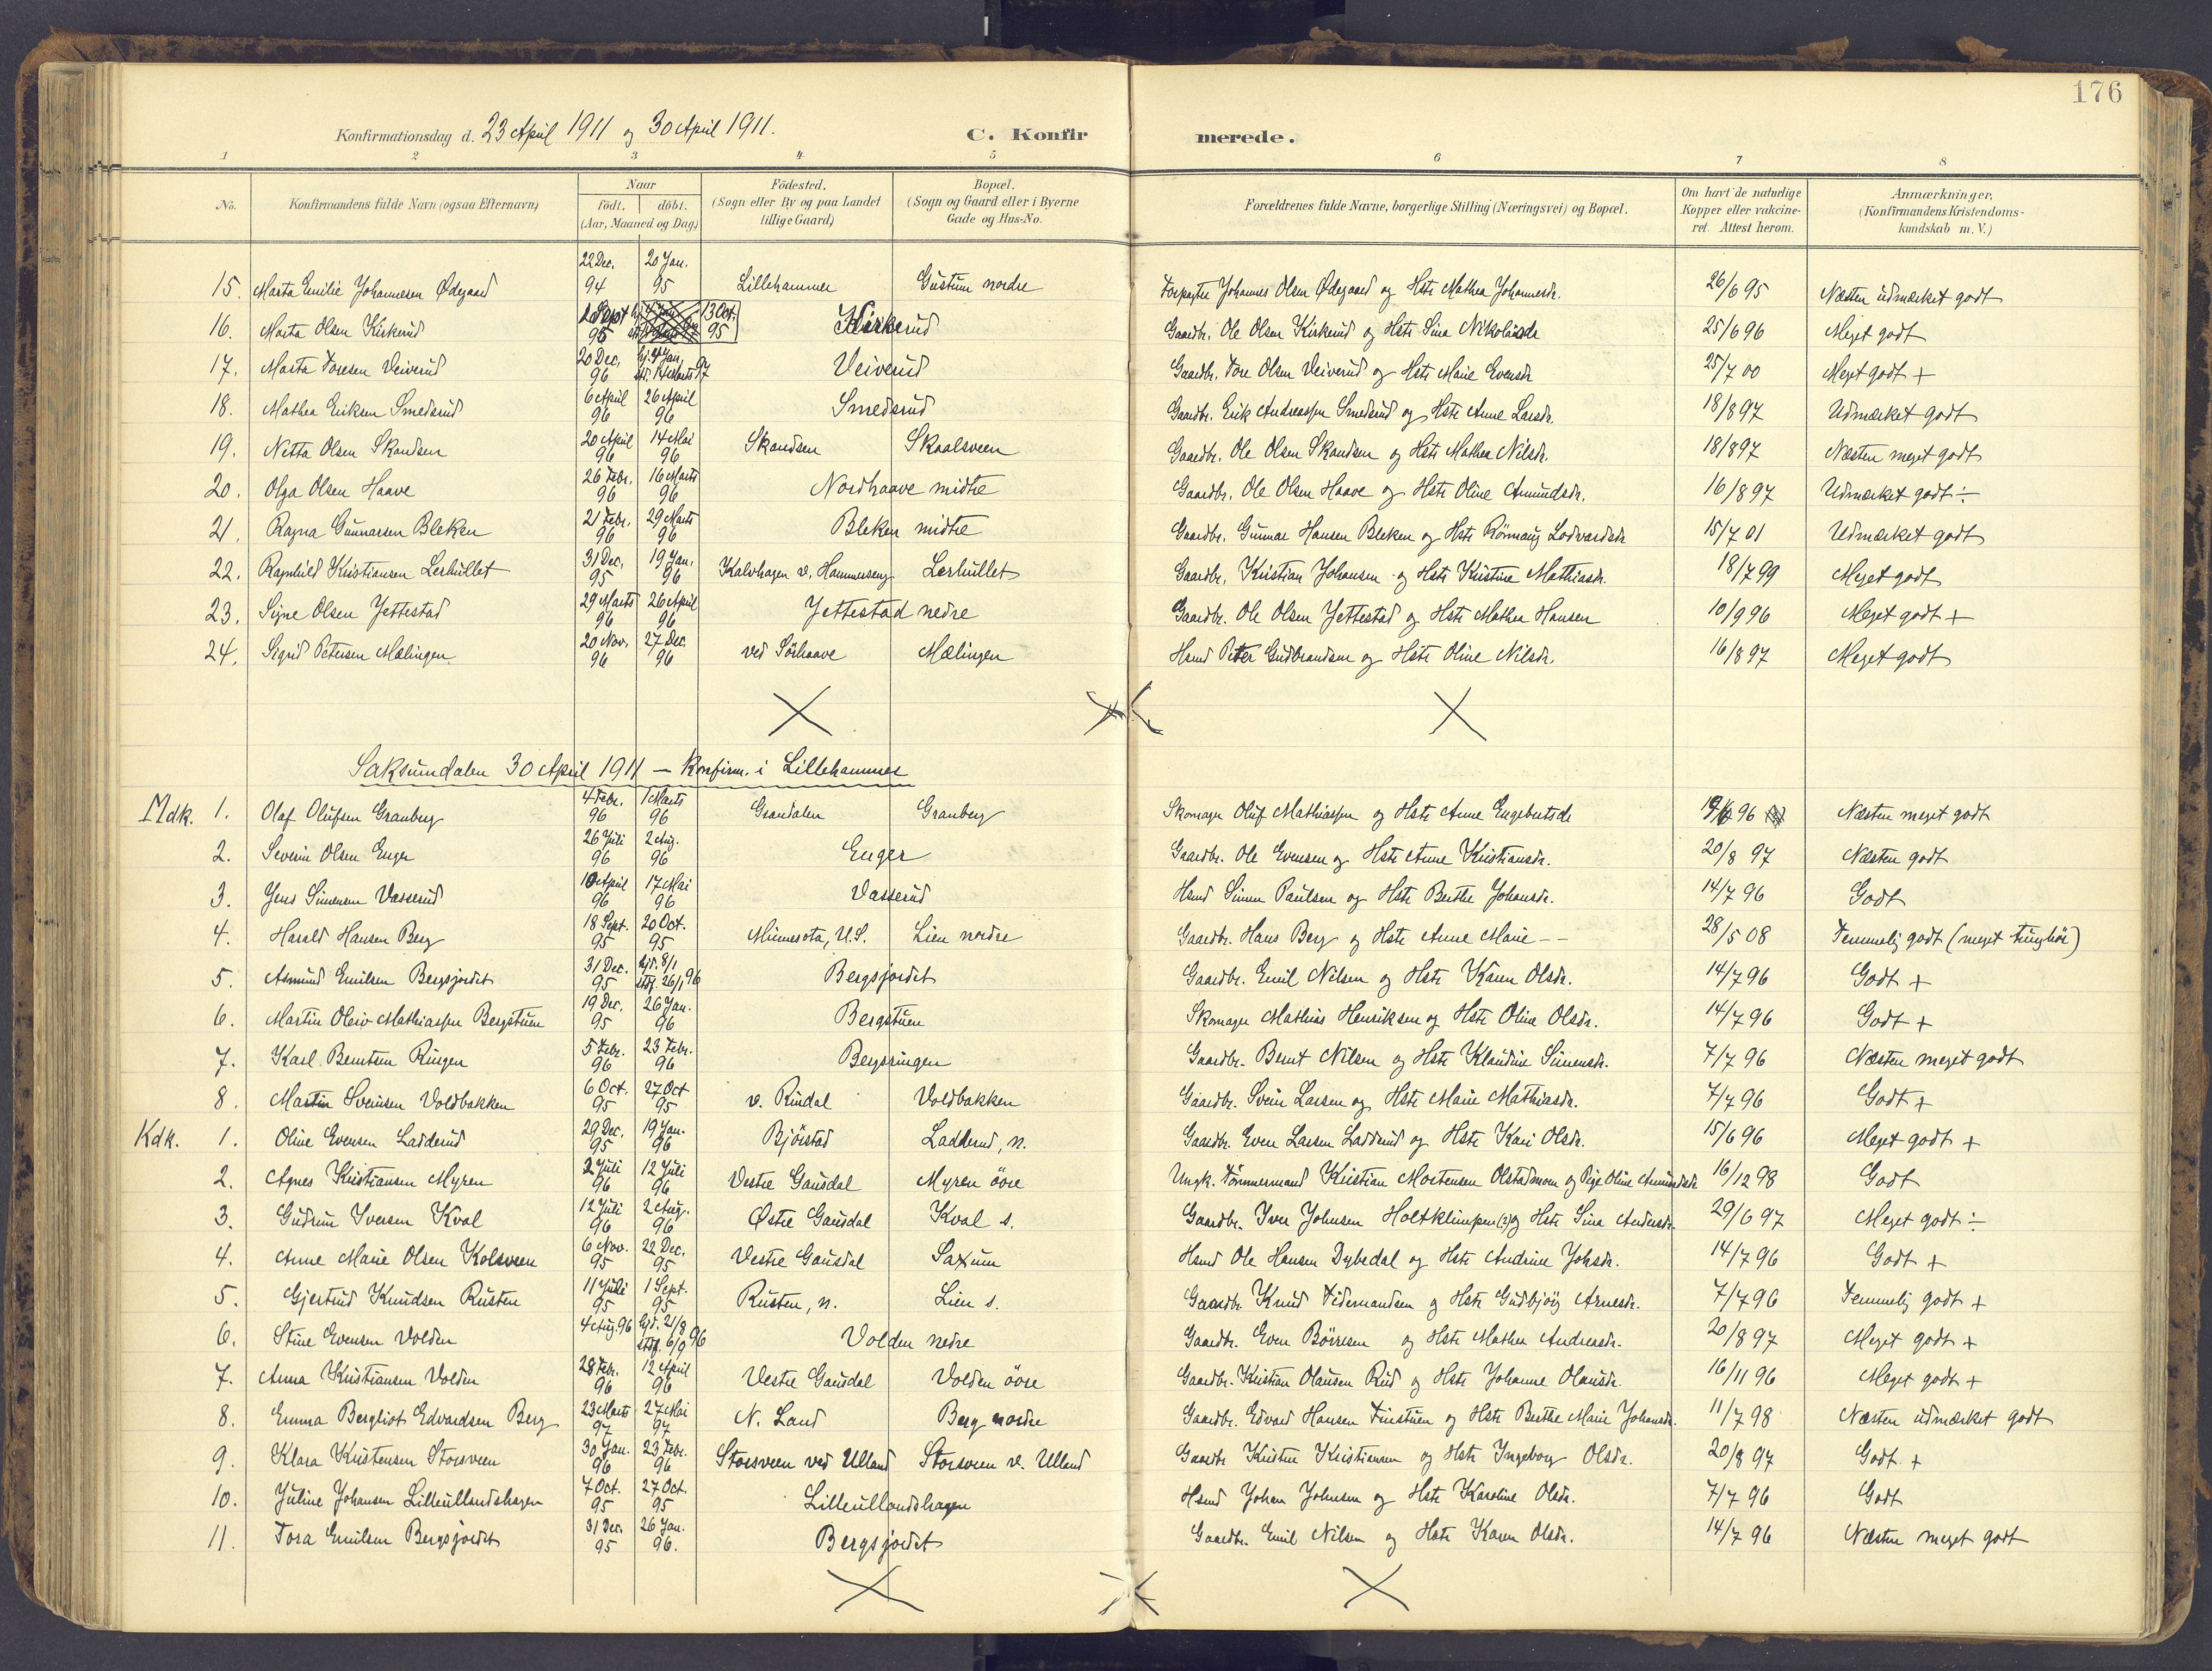 176
Konfirmationsdag d. 23 April 1911 og 30 April 1911. C. Konfirmerede.
1 2 3 4 5 6 7 8
No. Konfirmandens fulde Navn (ogsaa Efternavn) Naar födt. döbt. (Aar, Maaned og Dag) Födested. (Sogn eller By og paa Landet tillige Gaard) Bopæl. (Sogn og Gaard eller i Byerne Gade og Hus-No. Forældrenes fulde Navne, borgerlige Stilling (Næringsvei) og Bopæl. Om havt de naturlige Kopper eller vakcineret. Attest herom. Anmærkninger. (Konfirmandens Kristendomskundskab m. V.)
15. Marta Emilie Johannesen Ødegaard 22 Dec. 94 20 Jan. 95 Lillehammer Gustum nordre Forpagter Johannes Olsen Ødegaard og Hstr Mathea Johannesdr. 26/6 95 Næsten udmærket godt
16. Marta Olsen Kirkerud 2 Sept 95 13 Oct. 95 Kirkerud Gaardbr. Ole Olsen Kirkerud og Hstr Sina Nikolaisdr 25/6 96 Meget godt
17. Marta Toresen Veiverud 20 Dec. 96 hj. 4 Jan, 97 Veiverud Gaardbr. Tore Olsen Veiverud og Hstr Marie Evensdr 25/7 00 Meget godt +
18. Mathea Eriksen Smedsrud 6 April 96 26 April 96 Smedsrud Gaardbr. Erik Andreassen Smedsrud og Hstr Anne Larsdr. 18/8 97 Udmærket godt
19. Netta Olsen Skandsen 20 April 96 14 Mai 96 Skandsen Skaalsveen Gaardbr. Ole Olsen Skandsen og Hstr Mathea Nilsdr. 18/8 97 Næsten meget godt
20. Olga Olsen Haave 26 Febr. 96 16 Marts 96 Nordhaave midtre Gaardbr. Ole Olsen Haave og Hstr Oline Amundsdr. 16/8 97 Udmærket godt ÷
21. Ragna Gunnarsen Bleken 21 Febr. 96 29 Marts 96 Bleken midtre Gaardbr. Gunnar Hansen Bleken og Hstr Rönnaug Lodvardsdr 15/7 01 Udmærket godt
22. Ragnhild Kristiansen Lerhullet 31 Dec. 95 19 Jan. 96 Kalvhagen v. Hammerseng Lerhullet Gaardbr. Kristian Johansen og Hstr Kristine Mathiasdr. 18/7 99 Meget godt
23. Signe Olsen Jettestad 29 Marts 96 26 April 96 Jettestad nedre Gaardbr. Ole Olsen Jettestad og Hstr Mathea Hansen 10/9 96 Meget godt +
24. Sigrid Petersen Mælingen 20 Nov. 96 27 Dec. 96 ved Sörhaave Mælingen Hsmd Peter Gudbrandsen og Hstr Oline Nilsdr. 16/8 97 Meget godt
Saksumdalen 30 April 1911 — Konfirm. i Lillehammer
Mdk. 1. Olaf Olufsen Granberg 4 Febr. 96 1 Marts 96 Grandalen Granberg Skomager Oluf Mathiassen og Hstr Anne Engebretsdr 96 Næsten meget godt
2. Severin Olsen Enger 26 Juli 96 2 Aug. 96 Enger Gaardbr. Ole Evensen og Hstr Anne Kristiansdr. 20/8 97 Næsten godt
3. Jens Simensen Vasserud 10 April 96 17 Mai 96 Vasserud Hsmd Simen Paulsen og Hstr Berthe Johansdr. 14/7 96 Godt
4. Harald Hansen Berg 18 Sept. 95 20 Oct. 95 Minnesota, U.S. Lien nordre Gaardbr. Hans Berg og Hstr Anne Marie - - 28/5 08 Temmelig godt (meget tunghör)
5. Asmund Emilsen Bergsjordet 31 Dec. 95 hjd. 8/1 stdf. 26/1 96 Bergsjordet Gaardbr. Emil Nilsen og Hstr Karen Olsdr. 14/7 96 Godt +
6. Martin Oleiv Mathiassen Bergstuen 19 Dec. 95 26 Jan. 96 Bergstuen Skomager Mathias Henriksen og Hstr Oline Olsdr. 14/7 96 Godt +
7. Karl Berntsen Ringen 5 Febr. 96 23 Febr. 96 Bergsringen Gaardbr. Bernt Nilsen og Hstr Klaudine Simensdr. 7/7 96 Næsten meget godt
8. Martin Sveinsen Voldbakken 6 Oct. 95 27 Oct 95 v. Rindal Voldbakken Gaardbr. Svein Larsen og Hstr Marie Mathiasdr. 7/7 96 Godt +
Kdk. 1. Oline Evensen Ladderud 29 Dec. 95 19 Jan. 96 Björstad Ladderud, n. Gaardbr. Even Larsen Ladderud og Hstr Kari Olsdr. 15/6 96 Meget godt +
2. Agnes Kristiansen Myren 2 Juli 96 12 Juli 96 Vestre Gausdal Myren övre Ungk. Tömmermand Kristian Mortensen Olstadmoen og Pige Oline Amundsdr 16/12 98 Godt
3. Gudrun Iversen Kval 12 Juli 96 2 Aug. 96 Østre Gausdal Kval s. Gaardbr. Iver Johnsen Holtklimpen (?) og Hstr Sina Andersdr. 29/6 97 Meget godt ÷
4. Anne Marie Olsen Kolsveen 6 Nov. 95 22 Dec. 95 Vestre Gausdal Saxum Hsmd Ole Hansen Dybedal og Hstr Andrine Johsdr. 14/7 96 Godt +
5. Gjertrud Knudsen Rusten 11 Juli 95 1 Sept. 95 Rusten, n. Lien s. Gaardbr. Knud Tidemandsen og Hstr Gudbjörg Arnesdr. 7/7 96 Temmelig godt +
6. Stine Evensen Volden 4 Aug. 96 hjd. 21/8 stdf. 6/9 96 Volden nedre Gaardbr. Even Börresen og Hstr Mathea Andreasdr. 20/8 97 Meget godt +
7. Anna Kristiansen Volden 28 Febr. 96 12 April 96 Vestre Gausdal Volden övre Gaardbr. Kristian Olausen Rud og Hstr Johanne Olausdr. 16/11 96 Meget godt +
8. Emma Bergliot Edvardsen Berg 23 Marts 97 27 Mai 97 N. Land Berg nordre Gaardbr. Edvard Hansen Finstuen og Hstr Berthe Marie Johansdr. 11/7 98 Næsten udmærket godt
9. Klara Kristensen Storsveen 30 Jan. 96 23 Febr. 96 Storsveen ved Ulland Storsveen v. Ulland Gaardbr Kristen Kristiansen og Hstr Ingeborg Olsdr. 20/8 97 Godt +
10. Juline Johansen Lilleullandshagen 7 Oct. 95 27 Oct. 95 Lilleullandshagen Hsmd Johan Johnsen og Hstr Karoline Olsdr. 7/7 96 Godt
11. Tora Emilsen Bergsjordet 31 Dec. 95 26 Jan. 96. Bergsjordet Gaardbr. Emil Nilsen og Hstr Karen Olsdr. 14/7 96 Næsten meget godt